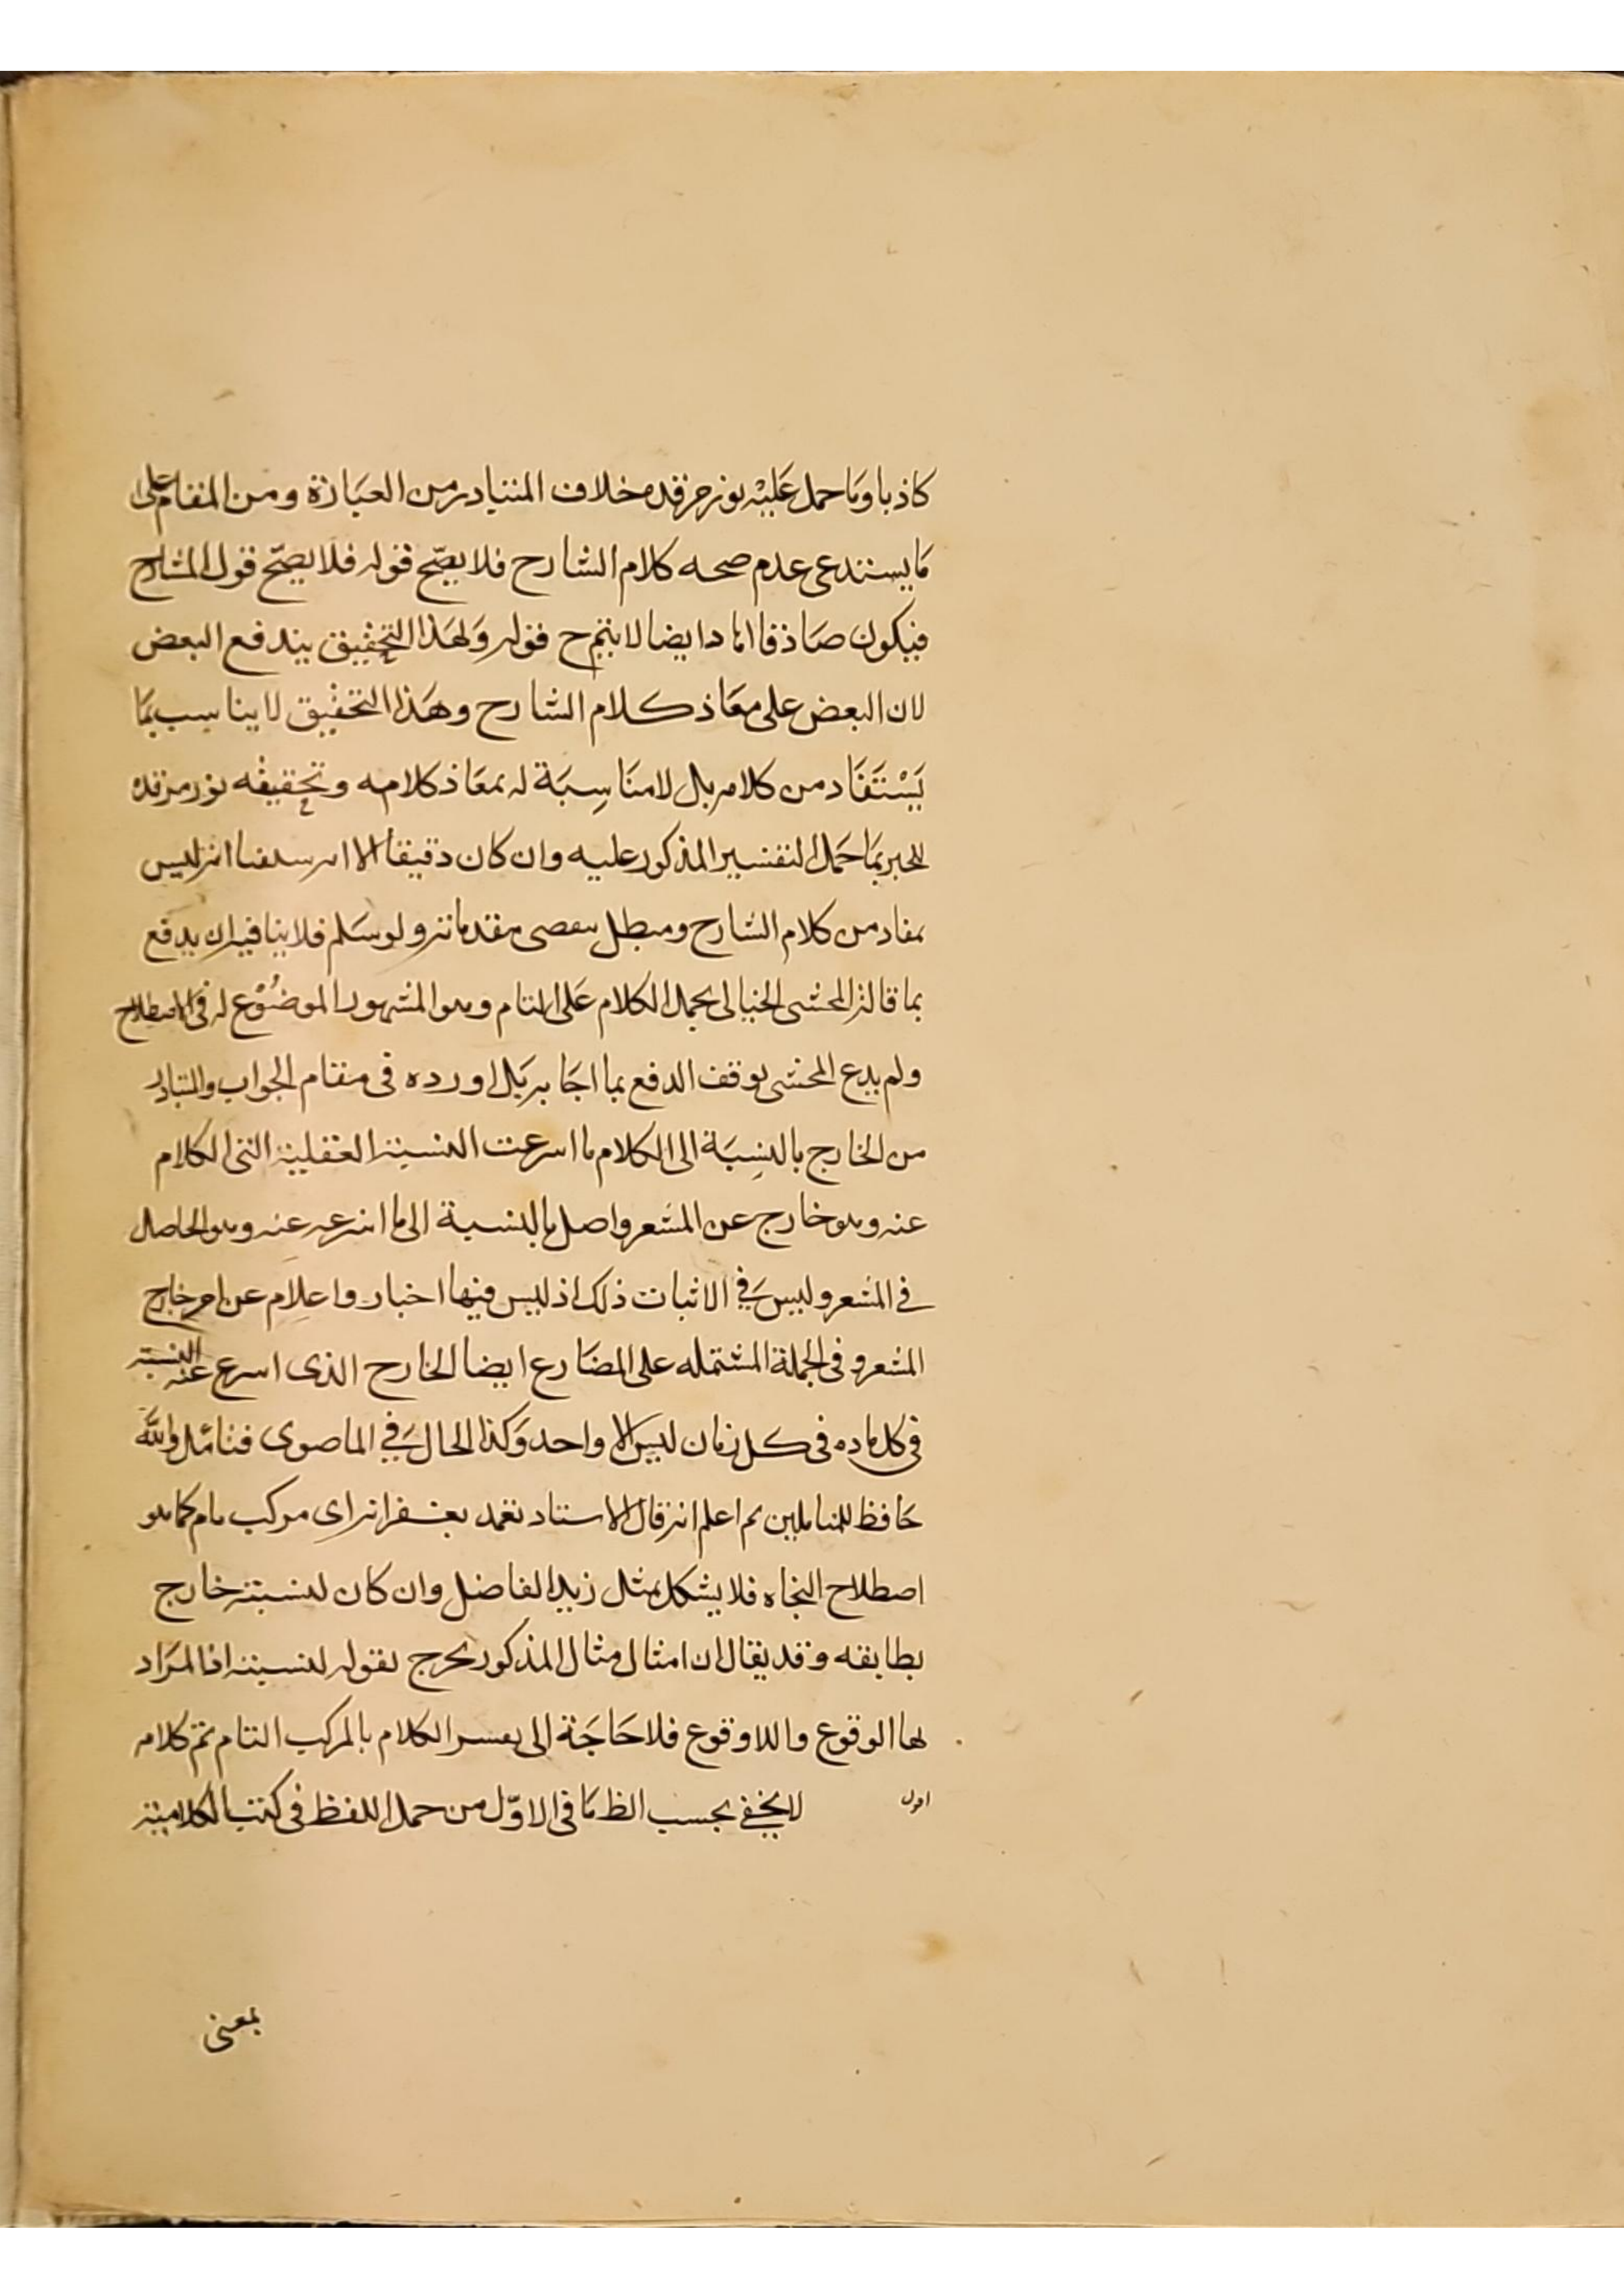 كاذبا وما حمل عليه نور مرقده خلاف المتبادر من العبارة ومن المقام على
ما يستدعى عدم صحه كلام الشارح فلا يصح قوله فلا يصح قول الشارح
فيكون صادقا ايضا لا يتم ح قوله ولهذا التحقيق يندفع البعض
لان البعض على مفاد كلام الشارح وهذا التحقيق لا يناسب بما
يستفاد من كلامه بل لا مناسبة له بمفاد كلامه وتحقيقه نور مرقده
للخبر بما حمل التفسير المذكور عليه وان كان دقيقا الا انه انه ليس
بمفاد من كلام الشارح ومبطل مقدماته ولو سلم فلا ينافيه ان يدفع
بما قاله المحشى الخيالى بحمل الكلام على التام وهو المشهور الموضوع له فى الاصطلاح
ولم يدع المحشى توقف الدفع بما اجا به بل اورده فى مقام الجواب والمتبادر
من الخارج بالنسبة الى الكلام ما النسبة العقلية التى الكلام
عنه وهو خارج عن المشعر واصل بالنسبة الى ما عنه وهو الحاصل
في المشعر وليس في الاثبات ذلك اذ ليس فيها اخبار واعلام عن امر خارج
المشعر وفى الجملة المشتمله على المضارع ايضا الخارج الذى عنه النسبة
فى كل ماده فى كل زمان ليس الا واحد وكذا الحال في فتامل والله
حافظ للمتاملين ثم اعلم انه قال الاستاد تغمد بغفرانه اى مركب تام كما هو
اصطلاح النحاه فلا يشكل بمثل زيد الفاضل وان كان لنسبته خارج
يطابقه وقد يقال ان امثال مثال المذكور يخرج بقوله لنسبته اذ المراد
لها الوقوع واللا وقوع فلا حاجة الى الكلام بالمركب التام تم كلامه
اقول لا يخفى بحسب الظ ما فى الاول من حمل اللفظ فى كتب الكلامية
بمعنى